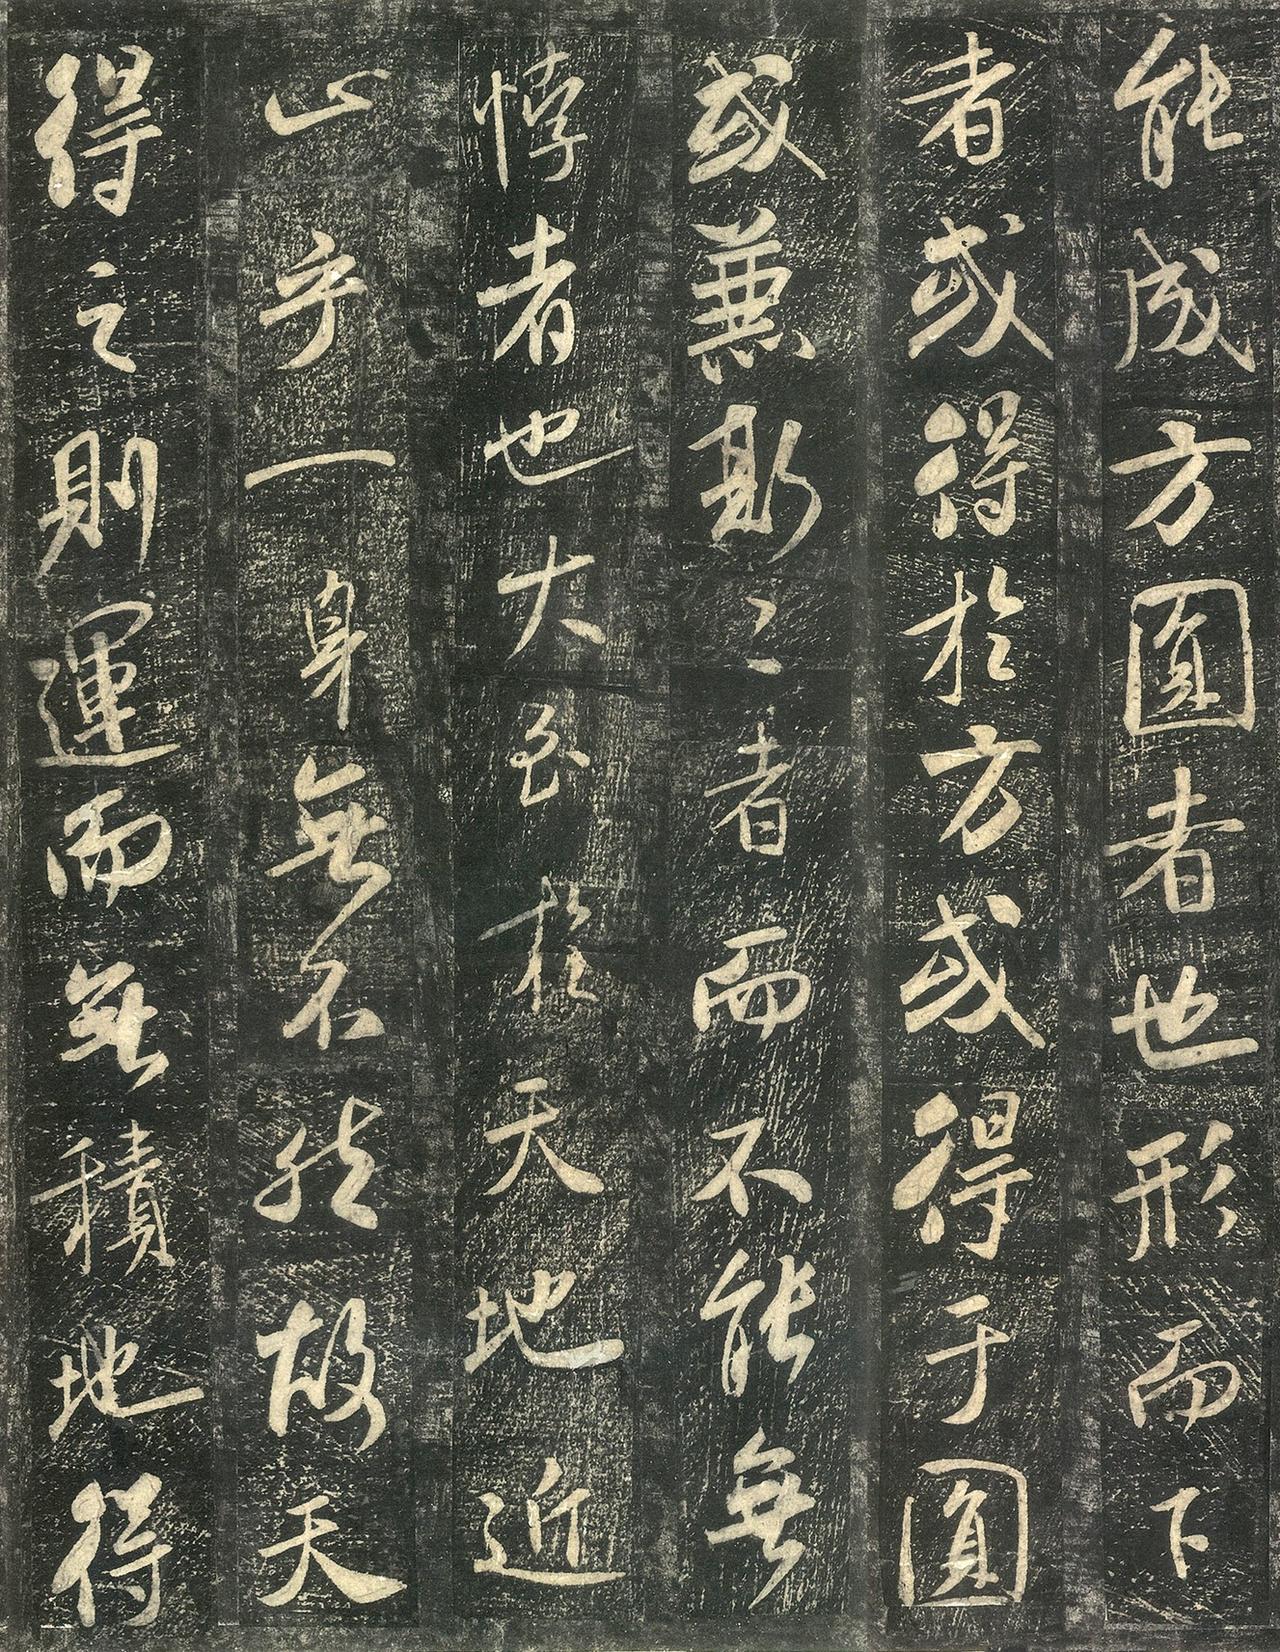 能成方圓者也形而下
者或得於方或得于圓
或兼斯二者而不能無
悖者也大至於天地近
止乎一身無不然故天
得之則運而無積地得